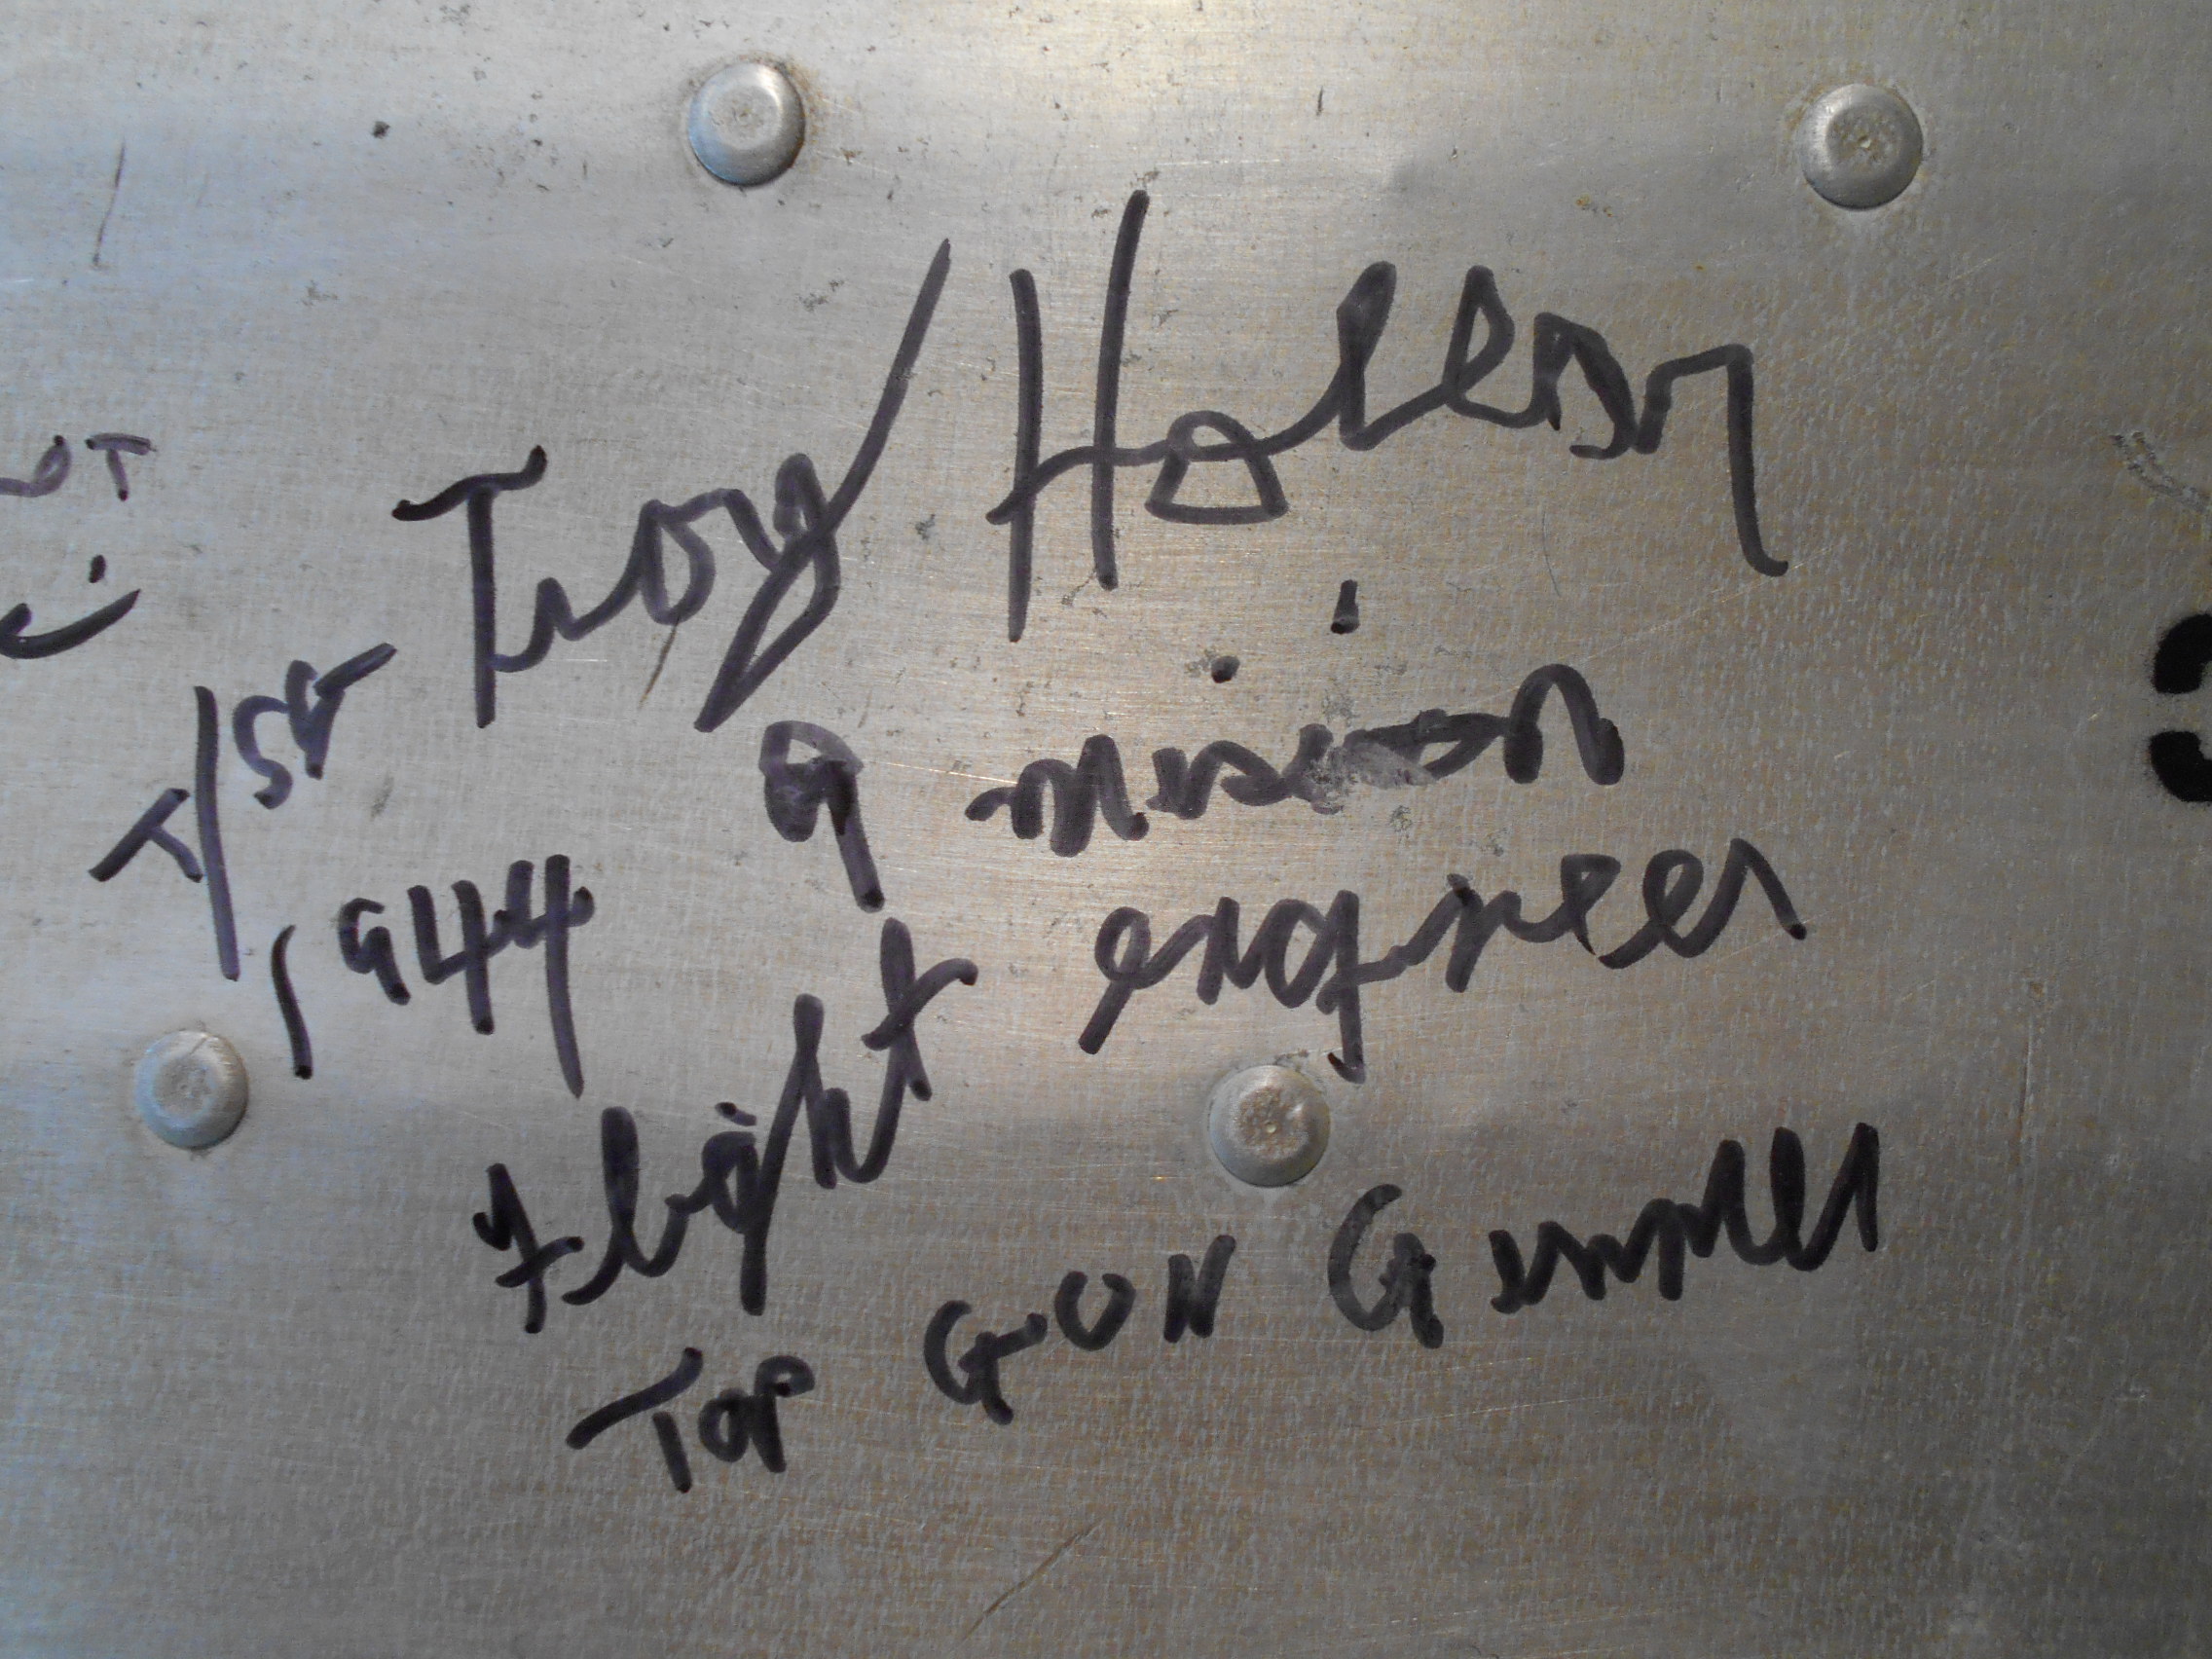 T/SGT Troy
1944 9 mission
Flight engineer
TOP GUN Gunner